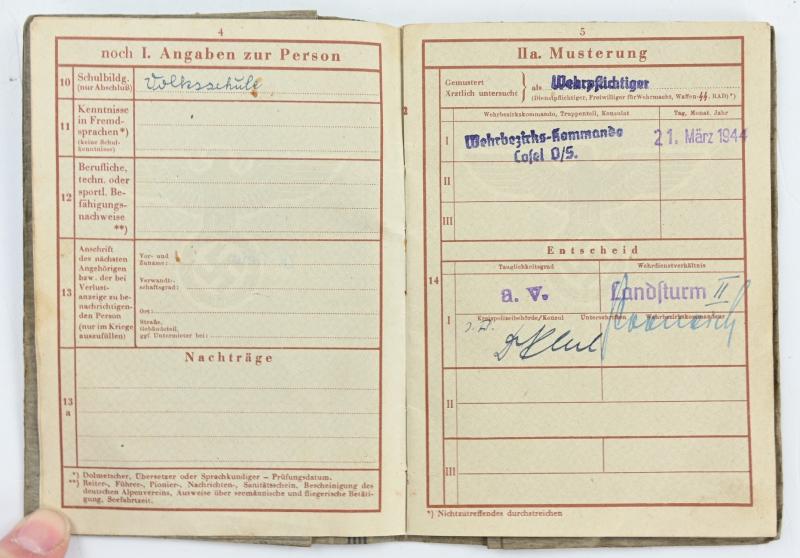 4
noch I. Angaben zur Person
10 Schulbildg. (nur Abschluß)
Volksschule
11 Kenntnisse
in Fremd-
sprachen*)
(keine Schul-
kenntnisse)
12 Berufliche,
techn. oder
sportl. Be-
fähigungs-
nachweise
**)
13 Anschrift
des nächsten
Angehörigen
bzw. der bei
Verlust-
anzeige zu be-
nachrichtigen-
den Person
(nur im Kriege
auszufüllen)
Vor- und
Zuname:
Verwandt-
schaftsgrad:
Ort:
Straße,
Gebäudeteil,
ggf. Untermieter bei:
Nachträge
13
a
*) Dolmetscher, Übersetzer oder Sprachkundiger – Prüfungsdatum.
**) Reiter-, Führer-, Pionier-, Nachrichten-, Sanitätsschein, Bescheinigung des
deutschen Alpenvereins, Ausweise über seemännische und fliegerische Betäti-
gung, Seefahrtzeit.
5
IIa. Musterung
Gemustert
Ärztlich untersucht } als Wehrpflichtiger
(Dienstpflichtiger, Freiwilliger für Wehrmacht, Waffen-SS, RAD)*)
Wehrbezirkskommando, Truppenteil, Konsulat
Tag, Monat, Jahr
I
Wehrbezirks-Kommando
Cosel O/S.
21. März 1944
II
III
Entscheid
14
Tauglichkeitsgrad
Wehrdienstverhältnis
a. v.
Landsturm II
I
Kreispolizeibehörde/Konsul Unterschriften Wehrbezirkskommandeur
II
III
*) Nichtzutreffendes durchstreichen